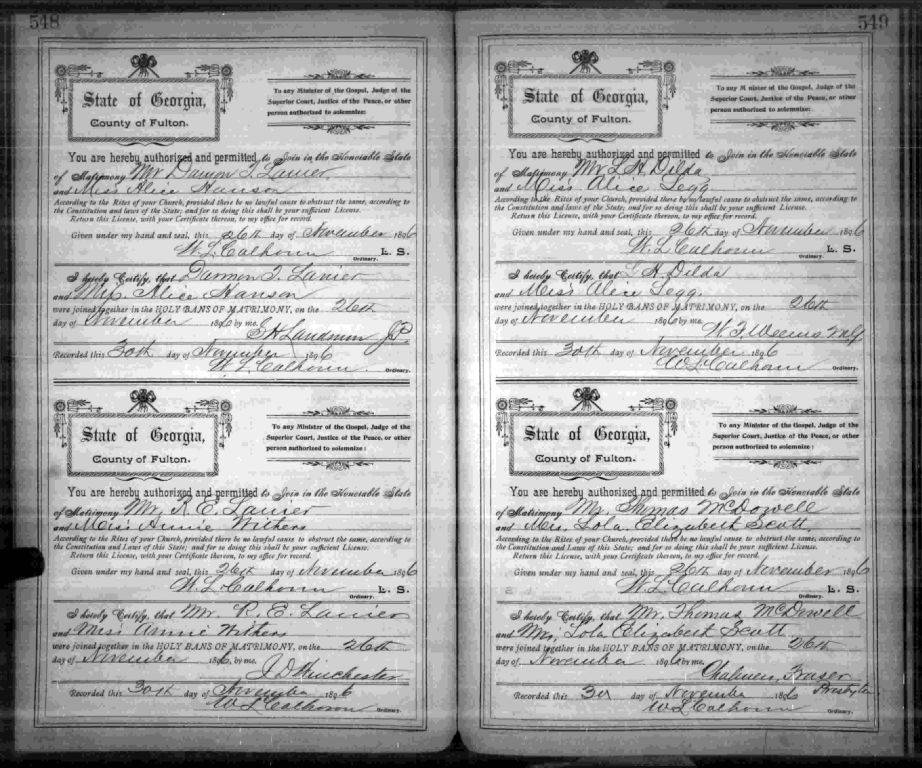 548
State of Georgia,
County of Fulton.
To any Minister of the Gospel, Judge of the
Superior Court, Justice of the Peace, or other
person authorized to solemnize:
You are hereby authorized and permitted to Join in the Honorable State
of Matrimony Mr Damon T. Lanier
and Miss Alice Hanson
According to the Rites of your Church, provided there be no lawful cause to obstruct the same, according to
the Constitution and laws of the State; and for so doing this shall be your sufficient License.
Return this License, with your Certificate thereon, to my office for record.
Given under my hand and seal, this 26th day of November 1896
W. L. Calhoun L. S.
Ordinary.
I hereby Certify, that Damon T. Lanier
and Miss Alice Hanson
were joined together in the HOLY BANS OF MATRIMONY, on the 26th
day of November 1896 by me.
Landrum J.P.
Recorded this 30th day of November 1896
W L Calhoun. Ordinary.
State of Georgia,
County of Fulton.
To any Minister of the Gospel, Judge of the
Superior Court, Justice of the Peace, or other
person authorized to solemnize:
You are hereby authorized and permitted to Join in the Honorable State
of Matrimony Mr. R. E. Lanier
and Miss Annie Withers
According to the Rites of your Church, provided there be no lawful cause to obstruct the same, according to
the Constitution and Laws of this State; and for so doing this shall be your sufficient License.
Return this License, with your Certificate thereon, to my office for record.
Given under my hand and seal, this 26th day of November 1896
W. L. Calhoun L. S.
Ordinary.
I hereby Certify, that Mr. R. E. Lanier
and Miss Annie Withers
were joined together in the HOLY BANS OF MATRIMONY, on the 26th
day of November 1896. by me.
J D Winchester
Recorded this 30th day of November 1896
W L Calhoun Ordinary.
549
State of Georgia,
County of Fulton.
To any Minister of the Gospel, Judge of the
Superior Court, Justice of the Peace, or other
person authorized to solemnize:
You are hereby authorized and permitted to Join in the Honorable State
of Matrimony Mr L. H. Dilda
and Miss Alice Legg
According to the Rites of your Church, provided there be no lawful cause to obstruct the same, according to
the Constitution and laws of the State; and for so doing this shall be your sufficient License.
Return this License, with your Certificate thereon, to my office for record.
Given under my hand and seal, this 26th day of November 1896
W. L. Calhoun L. S.
Ordinary.
I hereby Certify, that L H Dilda
and Miss Alice Legg.
were joined together in the HOLY BANS OF MATRIMONY, on the 26th
day of November 1896 by me.
W. F. Weems M.G.
Recorded this 30th day of November 1896
W L Calhoun Ordinary.
State of Georgia,
County of Fulton.
To any Minister of the Gospel, Judge of the
Superior Court, Justice of the Peace, or other
person authorized to solemnize:
You are hereby authorized and permitted to Join in the Honorable State
of Matrimony Mr. Thomas McDowell
and Mrs. Lola Elizabert Scott
According to the Rites of your Church, provided there be no lawful cause to obstruct the same, according to
the Constitution and Laws of this State; and for so doing this shall be your sufficient License.
Return this License, with your Certificate thereon, to my office for record.
Given under my hand and seal, this 26th day of November 1896
W. L. Calhoun L. S.
Ordinary.
I hereby Certify, that Mr. Thomas McDowell
and Mrs. Lola Elizabert Scott
were joined together in the HOLY BANS OF MATRIMONY, on the 26th
day of November 1896 by me.
Chalmers Fraser
Presbyter
Recorded this day of November 1896
W L Calhoun Ordinary.